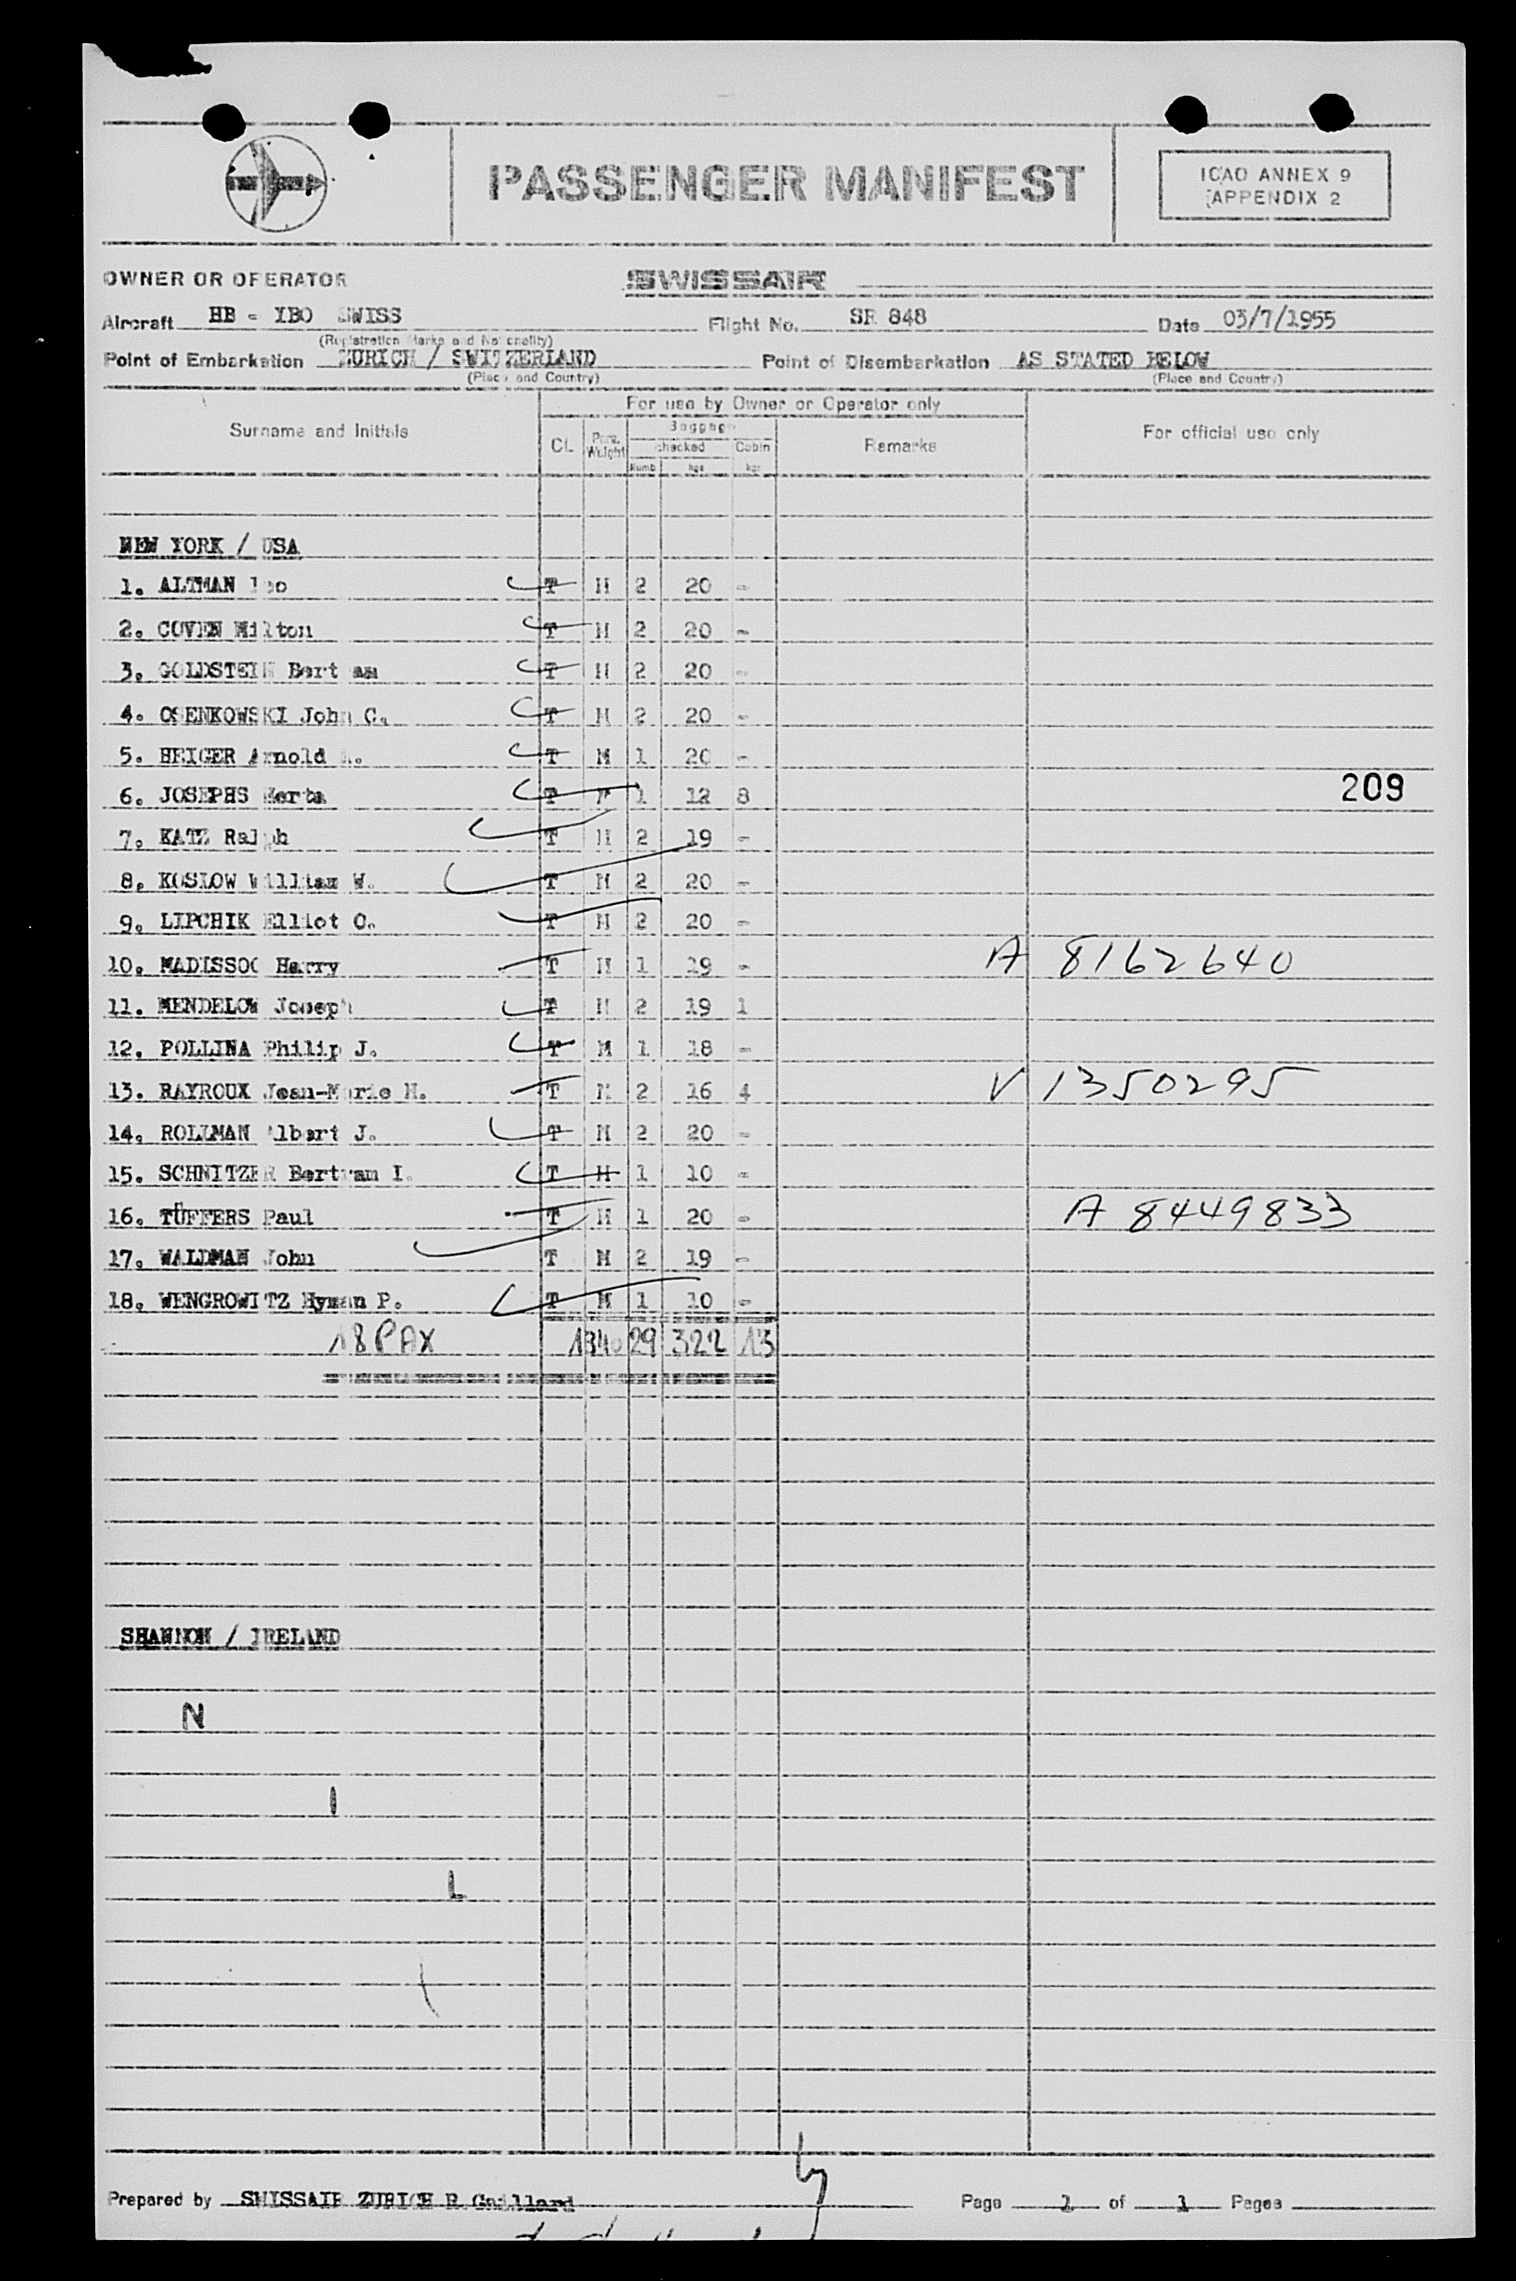 PASSENGER MANIFEST
ICAO ANNEX 9
APPENDIX 2
OWNER OR OPERATOR SWISSAIR
Aircraft HB - IBO SWISS Flight No. SR 848 Date 03/7/1955
(Registration Marks and Nationality)
Point of Embarkation ZURICH / SWITZERLAND Point of Disembarkation AS STATED BELOW
(Place and Country) (Place and Country)
For use by Owner or Operator only
Surname and Initials CL. Pass. Weight Baggage Remarks For official use only
checked Cabin
Numb. kgs kgs
NEW YORK / USA
1. ALTMAN Leo T M 2 20 -
2. COVEN Milton T M 2 20 -
3. GOLDSTEIN Bert am T M 2 20 -
4. OSENKOWSKI John C. T M 2 20 -
5. HEIGER Arnold T M 1 20 -
6. JOSEPHS Herta T F 1 12 8 209
7. KATZ Ralph T M 2 19 -
8. KOSLOW William W. T M 2 20 -
9. LIPCHIK Elliot O. T M 2 20 -
10. MADISSOO Harry T M 1 19 - A 8162640
11. MENDELOW Joseph T M 2 19 1
12. POLLINA Philip J. T M 1 18 -
13. RAYROUX Jean-Marie H. T M 2 16 4 V 1350295
14. ROLLMAN Albert J. T M 2 20 -
15. SCHNITZER Bertram I. T M 1 10 -
16. TÜFFERS Paul T M 1 20 - A 8449833
17. WALDMAN John T M 2 19 -
18. WENGROWITZ Hyman P. T M 1 10 -
18 PAX 1340 29 322 13
SHANNON / IRELAND
N
I
L
Prepared by SWISSAIR ZURICH R Gaillard Page 1 of 1 Pages